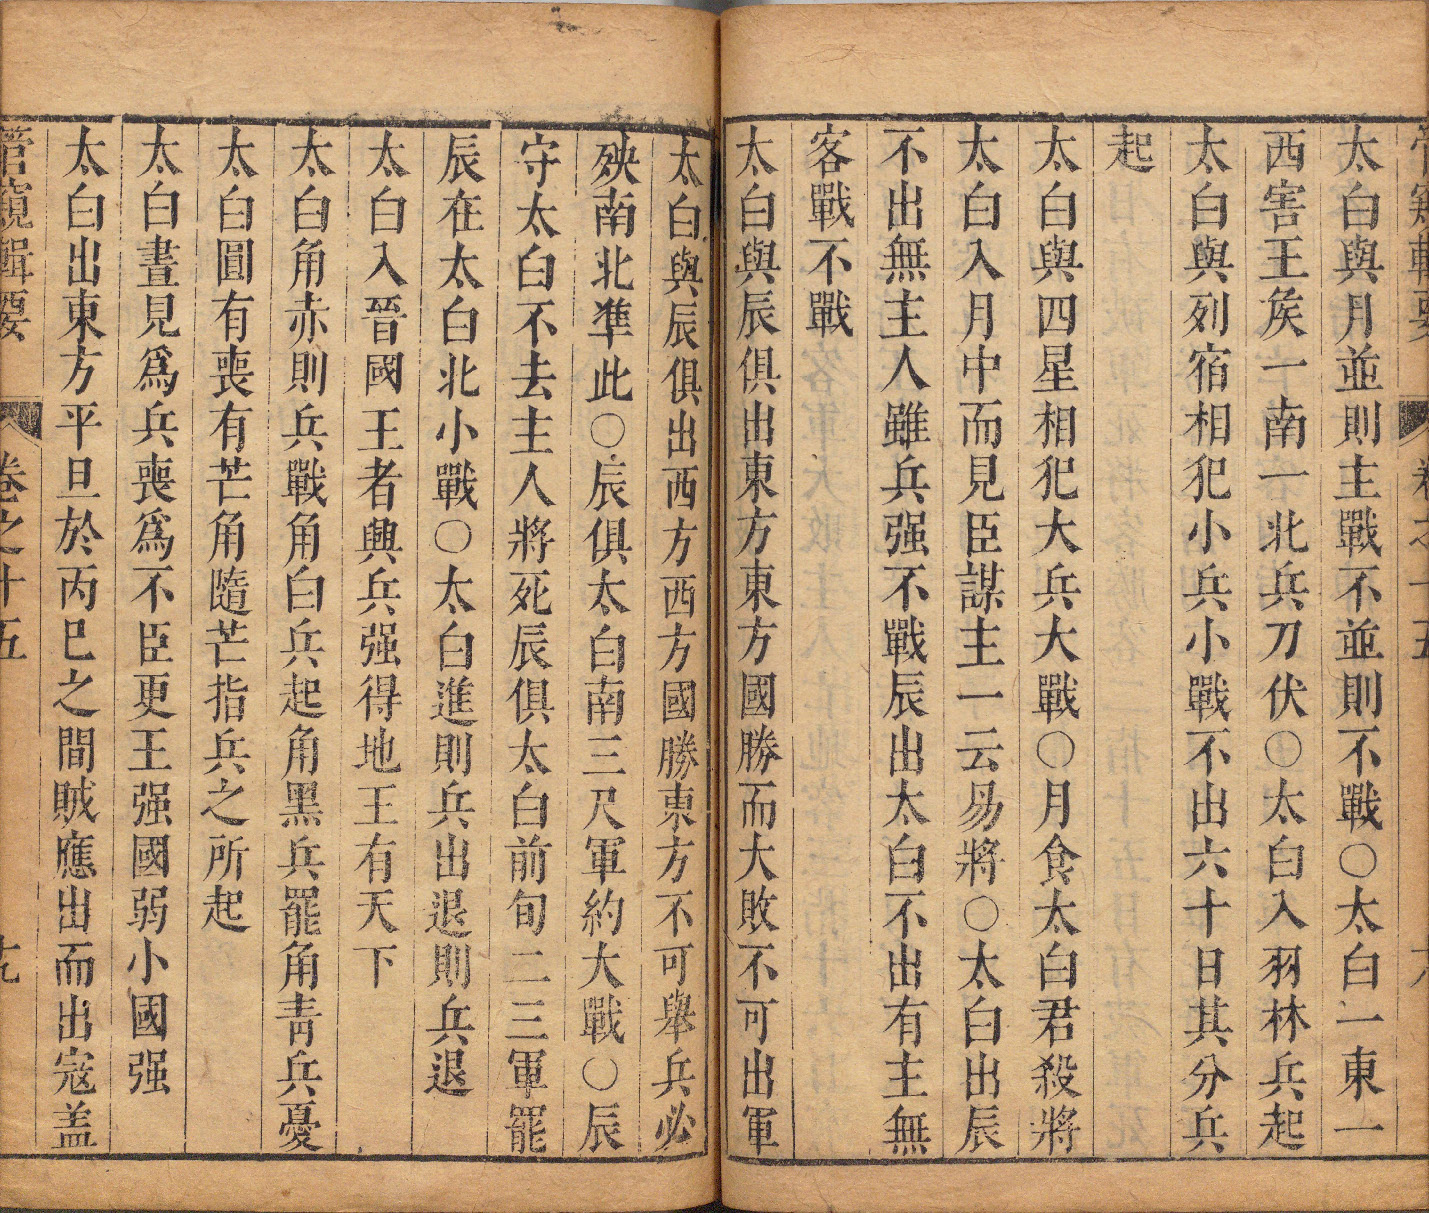 管窺輯要　卷之十五
太白與月並則主戰不並則不戰〇太白一東一
西害王矦一南一北兵刀伏〇太白入羽林兵起
太白與列宿相犯小兵小戰不出六十日其分兵
起
太白與四星相犯大兵大戰〇月食太白君殺將
太白入月中而見臣謀主一云易將〇太白出辰
不出無主人雖兵强不戰辰出太白不出有主無
客戰不戰
太白與辰俱出東方東方國勝而大敗不可出軍
太白與辰俱出西方西方國勝東方不可舉兵必
殃南北準此〇辰俱太白南三尺軍約大戰〇辰
守太白不去主人將死辰俱太白前旬二三軍罷
辰在太白北小戰〇太白進則兵出退則兵退
太白入晉國王者興兵强得地王有天下
太白角赤則兵戰角白兵起角黑兵罷角靑兵憂
太白圓有喪有芒角隨芒指兵之所起
太白晝見爲兵喪爲不臣更王强國弱小國强
太白出東方平旦於丙巳之間賊應出而出寇盖
管窺輯要　卷之十五　十九